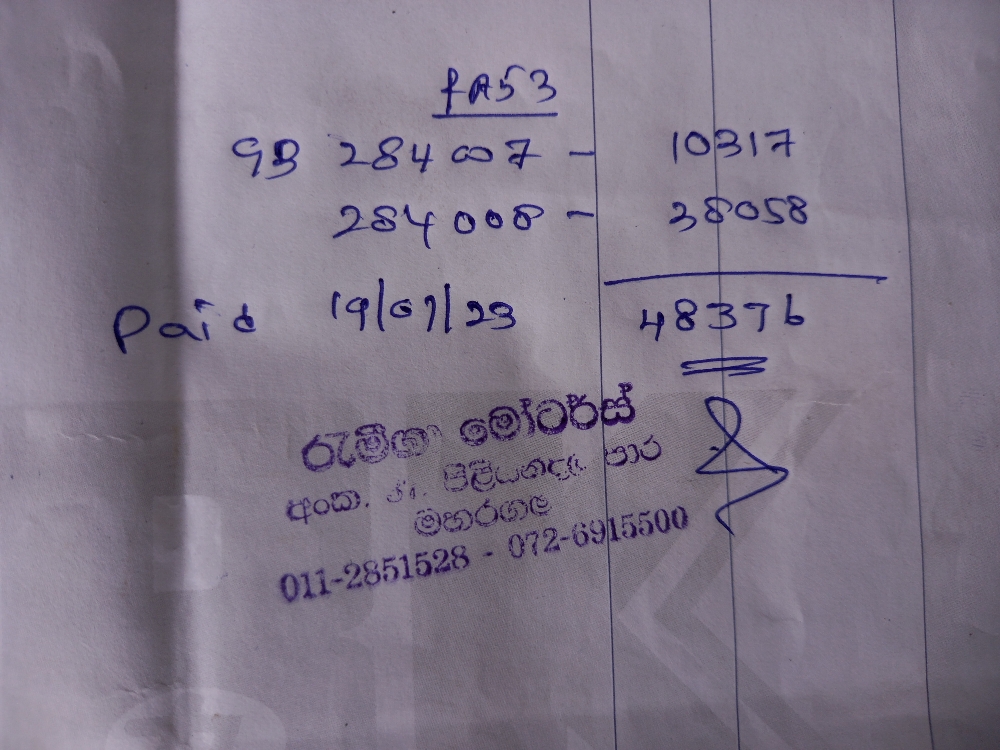 PA53
GB 284007 - 10317
284008 - 38058
48376
Paid 19/07/23
රැම්ගා මෝටර්ස්
අංක. පිළියන්දල පාර
මහරගම
011-2851528 - 072-6915500